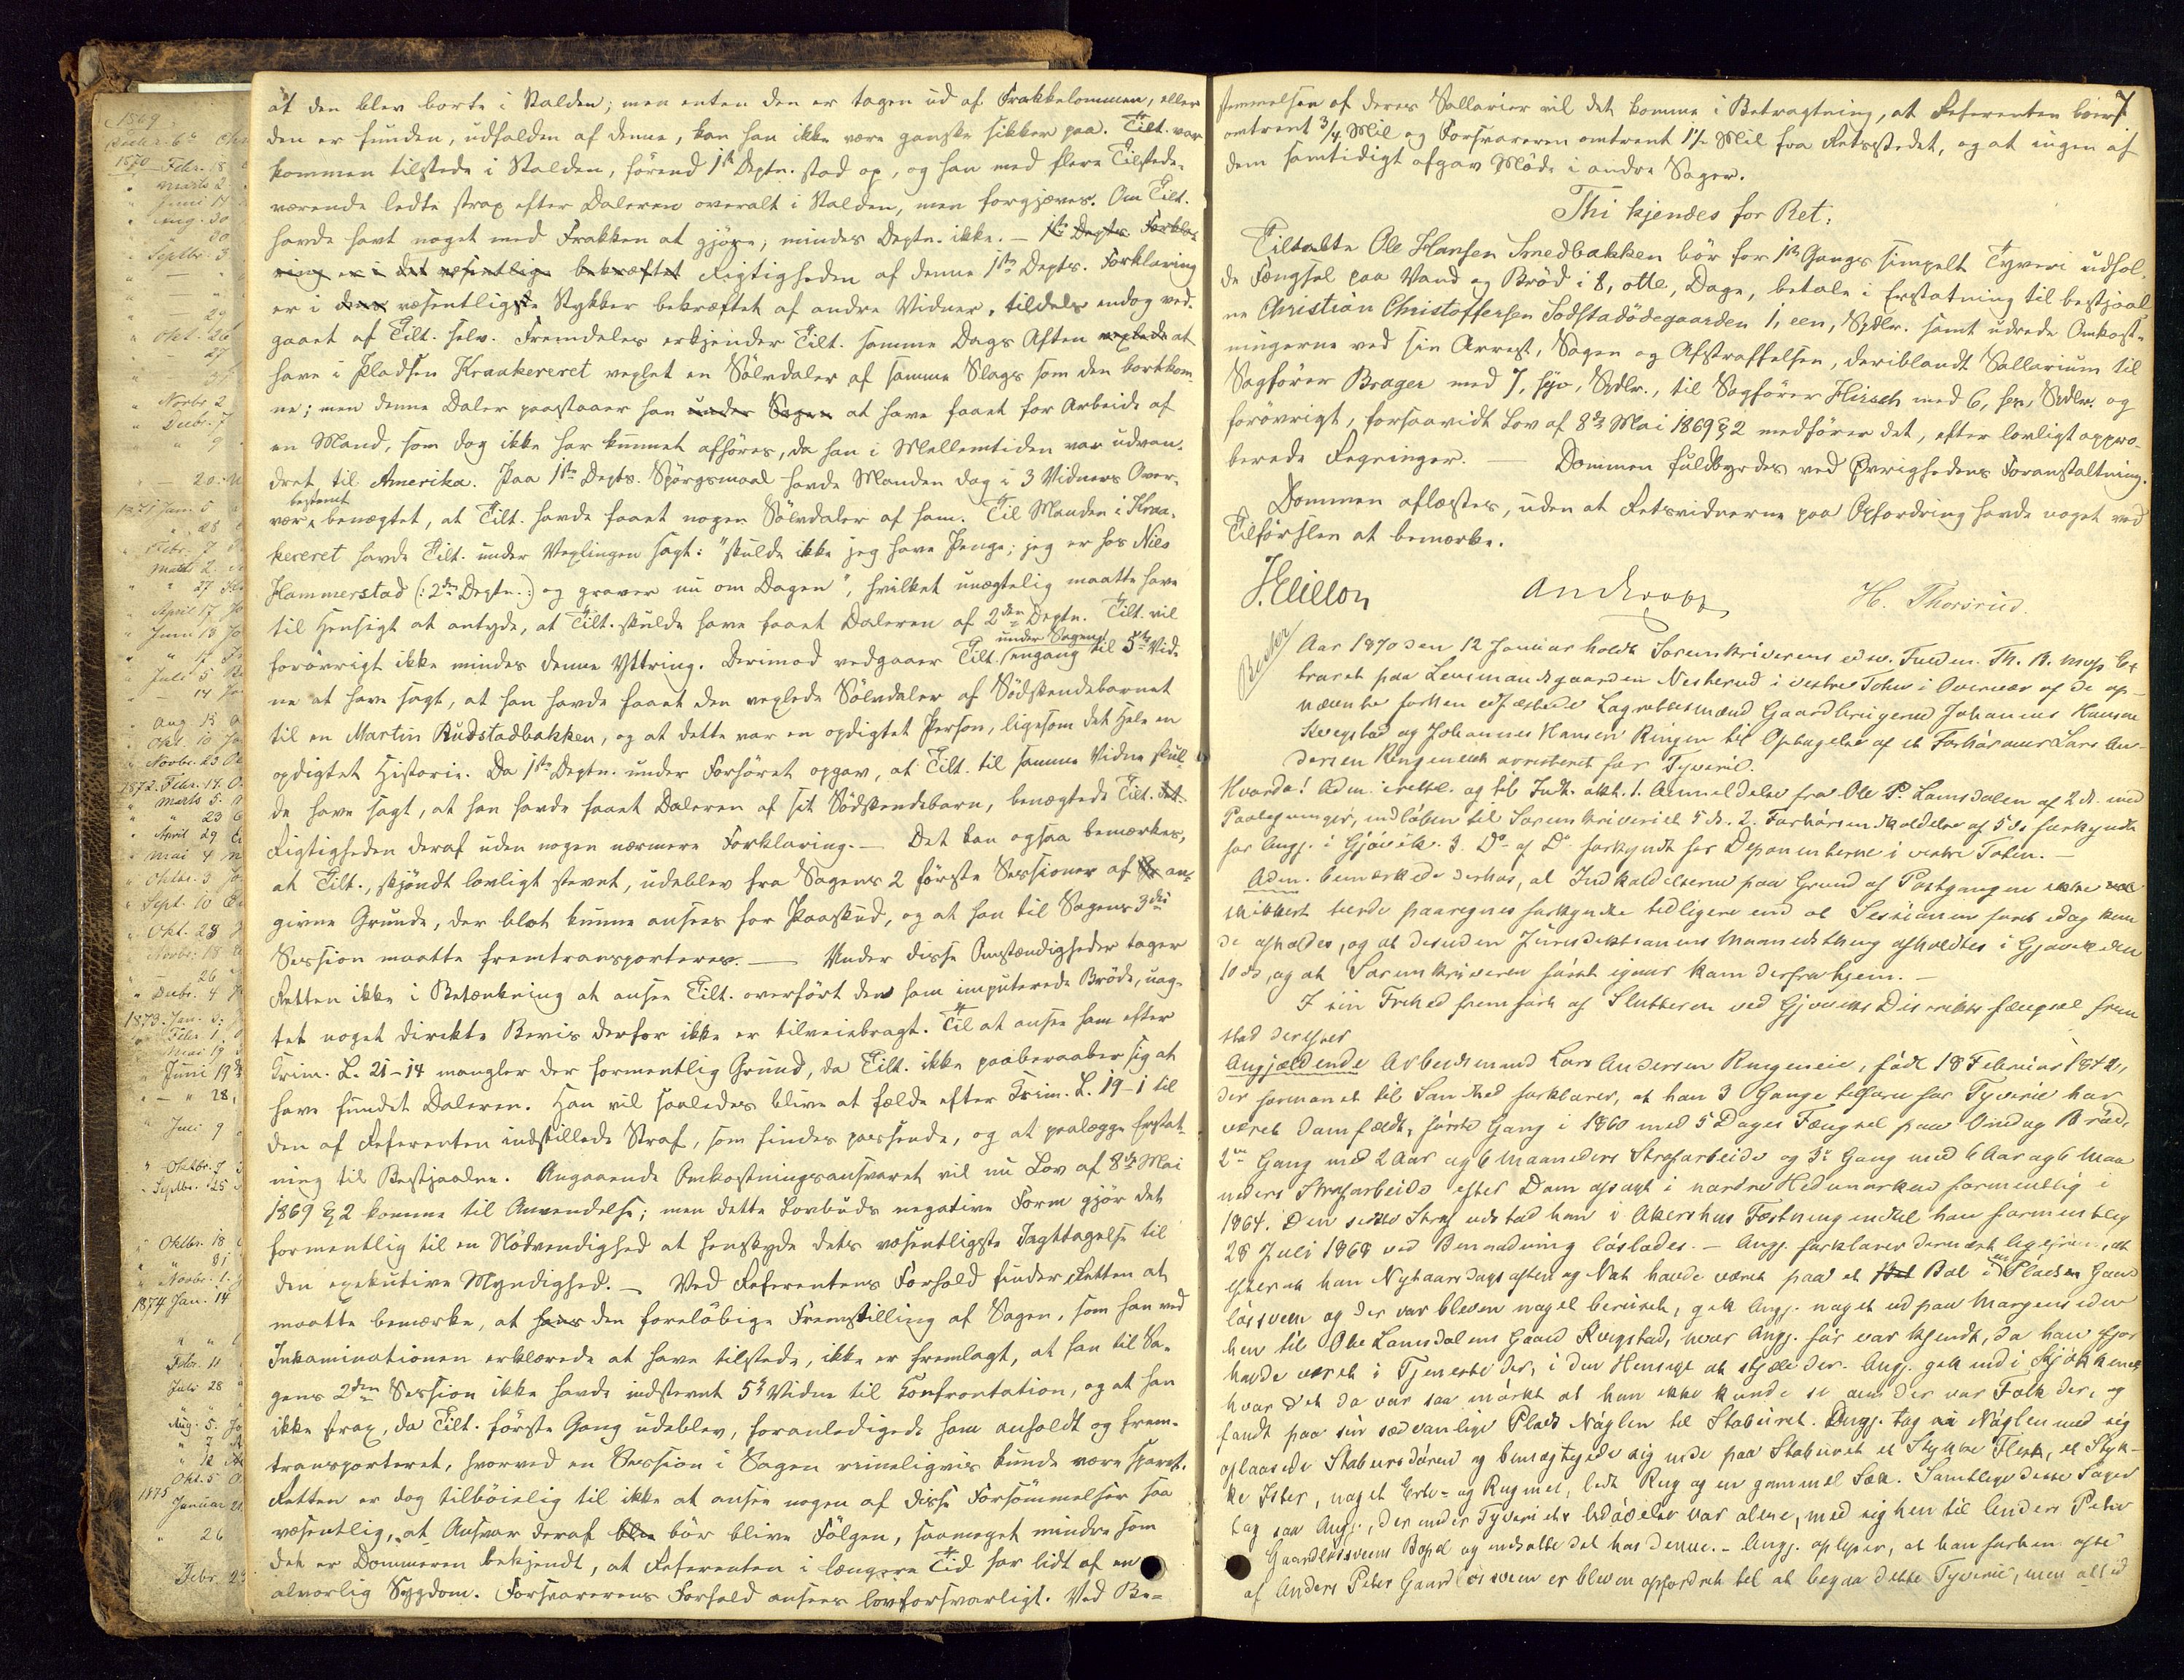 1869
1870 Febr. 18
" Marts 2
" Juni 17
" Aug. 30
" " 30
" Septbr. 3
" — "
" — 29
" Okt. 26
" 27
" 31
" Novbr 2
" Decbr. 7
" " 9
" — 20.
1871 Jan. 5
" " 28
" Febr. 7
" Marts 2
" " 27
" April 17
" Juni 13
" " 17
" Juli 5
" — 14
" Aug. 15
" Okt. 10
" Novbr. 23
1872. Febr. 17. O
" Marts 5.
" " 23
" April 29
" Mai 4
" Oktbr. 3
" Sept. 10
" Okt. 28
" Novbr. 18
" — 26
" Decbr. 4
1873. Jan. 3.
" Febr. 1
" Mai 19
" Juni 19
" — " 28,
" Juli 9
" Oktbr. 7
" Septbr. 25
" Oktbr. 18
" " 31
" Novbr. 1.
1874 Jan. 14
" "
Febr. 11
Juli 28
Aug. 5.
" 7
" 12
Okt. 5
1875
Januar 21
" 26
Febr. 23
at den blev borte i Stalden; men enten den er tagen ud af Frakkelommen, eller
den er funden, udfalden af denne, kan han ikke være ganske sikker paa. Tilt. var
kommen tilstede i Stalden, førend 1ste Deptn. stod op, og han med flere Tilstede-
værende ledte strax efter Daleren overalt i Stalden, men forgjæves. Om Tilt.
havde havt noget med Frakken at gjøre, mindes Deptn. ikke. — 1ste Depts. Forkla-
ring er i det væsentlige bekræftet Rigtigheden af denne 1ste Depts. Forklaring
er i den væsentligste Stykker bekræftet af andre Vidner, tildels endog ved-
gaaet af Tilt. selv. Fremdeles erkjender Tilt. samme Dags Aften vexlede at
have i Pladsen Kraakereret vexlet en Sölvdaler af samme Slags som den bortkom-
ne; men denne Daler paastaaer han under Sagen at have faaet for Arbeide af
en Mand, som dog ikke har kunnet afhöres, da han i Mellemtiden var udvan-
dret til Amerika. Paa 1ste Depts. Spörgsmaal havde Manden dog i 3 Vidners Over-
bestemt
være benægtet, at Tilt. havde faaet nogen Sölvdaler af ham. Til Manden i Kraa-
kereret havde Tilt. under Vexlingen sagt: "skulde ikke jeg have Penge; jeg er hos Niels
Hammerstad (: 2den Deptn. :) og graver nu om Dagen", hvilket unægtelig maatte have
til Hensigt at antyde, at Tilt. skulde have faaet Daleren af 2den Deptn. Tilt. vil
under Sagen
forövrigt ikke mindes denne Yttring. Derimod vedgaaer Tilt. engang til 5te Vid-
ne at have sagt, at han havde faaet den vexlede Sölvdaler af Södskendebarnet
til en Martin Rudstadbakken, og at dette var en opdigtet Person, ligesom det Hele en
opdigtet Historie. Da 1ste Deptn. under Forhöret opgav, at Tilt. til samme Vidne skul-
de have sagt, at han havde faaet Daleren af sit Södskendebarn, benægtede Tilt. det
Rigtigheden deraf uden nogen nærmere Forklaring. — Det kan ogsaa bemærkes,
at Tilt., skjöndt lovligt stevnet, udeblev fra Sagens 2 förste Sessioner af an-
givne Grunde, der blot kunne ansees for Paaskud, og at han til Sagens 3die
Session maatte fremtransporteres. — Under disse Omstændigheder tager
Retten ikke i Betænkning at ansee Tilt. overfört den ham imputerede Bröde, uag-
tet noget direkte Bevis derfor ikke er tilveiebragt. Til at ansee ham efter
Krim. L. 21–14 mangler der formentlig Grund, da Tilt. ikke paaberaaber sig at
have fundet Daleren. Han vil saaledes blive at fælde efter Krim. L. 19–1 til
den af Referenten indstillede Straf, som findes passende, og at paalægge Erstat-
ning til Bestjaalne. Angaaende Omkostningsansvaret vil nu Lov af 8de Mai
1869 § 2 komme til Anvendelse; men dette Lovbuds negative Form gjör det
formentlig til en Nödvendighed at henskyde dets væsentligste Iagttagelse til
den exekutive Myndighed. — Ved Referentens Forhold finder Retten at
maatte bemærke, at hans den foreløbige Fremstilling af Sagen, som han ved
Inkaminationen erklærede at have tilstede, ikke er fremlagt, at han til Sa-
gens 2den Session ikke havde indstevnt 5te Vidne til Konfrontation, og at han
ikke strax, da Tilt. förste Gang udeblev, foranledigede ham anholdt og frem-
transporteret, hvorved en Session i Sagen rimeligvis kunde være sparet.
Retten er dog tilböielig til ikke at ansee nogen af disse Forsömmelser saa
væsentlig, at Ansvar deraf blive bör blive Fölgen, saameget mindre som
det er Dommeren bekjendt, at Referenten i længere Tid har lidt af en
alvorlig Sygdom. Forsvarerens Forhold ansees lovforsvarligt. Ved Be-
7
stemmelsen af deres Sallarier vil det komme i Betragtning, at Referenten boer
omtrent 3/4 Mil og Forsvareren omtrent 1½ Mil fra Retsstedet, og at ingen af
dem samtidigt afgav Möde i andre Sager.
Thi kjendes for Ret:
Tiltalte Ole Hansen Smedbakken bör for 1ste Gangs simpelt Tyveri udhol-
de Fængsel paa Vand og Bröd i 8, otte, Dage, betale i Erstatning til bestjaal-
ne Christian Christoffersen Sodstadödegaarden 1, een, Spdlr. samt udrede Omkost-
ningerne ved sin Arrest, Sagen og Afstraffelsen, deriblandt Sallarium til
Sagförer Brager med 7, syv, Spdlr., til Sagförer Hirsch med 6, sex, Spdlr. og
forövrigt, forsaavidt Lov af 8de Mai 1869 § 2 medförer det, efter lovligt appro-
berede Regninger. — Dommen fuldbyrdes ved Övrighedens Foranstaltning.
Dommen oplæstes, uden at Retsvidnerne paa Opfordring havde noget ved
Tilförslen at bemærke.
H. Thorsrud.
Aar 1870 den 12 Januar holdt Sorenskriverens edsv. Fuldm. Th. A. Extraret paa Lensmandsgaarden Nesterud i vestre Toten i Overvær af de op-
nævnte forhen edfæstede Lagrettesmænd Gaardbrugerne Johannes Hansen
Kvegstad og Johannes Hansen Ringen til Optagelse af et Forhör over Lars An-
dersen Ringeneiet arresteret for Tyverie.
Hvorda! Adm. irettel. og til Indt. akt. 1. Anmeldelse fra Ole P. Lamsdalen af 2 ds. med
Paategninger, indlöben til Sorenskriveriet 5 ds. 2. Forhörsindkaldelse af 5 ds forkyndt
for Angj. i Gjövik. 3. Do af Do forkyndt for Deponenterne i vestre Toten. —
Adm. bemærkede derhos, at Indkaldelserne paa Grund af Postgangen ikke
sikkert turde paaregnes forkyndte tidligere end at Sessionen först idag kun-
de afholdes, og at desuden Jurisdiktionens Maanedsthing afholdtes i Gjövik den
10 ds, og at Sorenskriveren först igaar kom derfra hjem. —
I sin Frihed fremfört af Slutteren ved Gjöviks Distriktsfængsel frem
stod derefter
Angjældende Arbeidsmand Lars Andersen Ringeneie, födt 18 Februar 1842,
der formanet til Sandhed forklarer, at han 3 Gange tilforn for Tyverie har
været domfældt, förste Gang i 1860 med 5 Dages Fængsel paa Vand og Bröd,
2en Gang med 2 Aar og 6 Maaneders Strafarbeide og 3e Gang med 6 Aar og 6 Maa
neders Strafarbeide efter Dom afsagt i nordre Hedemarken formentlig i
1864. Den sidste Straf udstod han i Akershus Fæstning indtil han formentlig
28 Juli 1868 ved Benaadning löslodes. — Angj. forklarer dernæst, at
efterat han Nytaarsdags aften og Nat havde været paa et Bal i Pladsen Gaard
lösveen og der var bleven noget beruset, gik Angj. noget ud paa Morgensiden
hen til Ole Lamsdalens Gaard Kvegstad, hvor Angj. för var kjendt, da han ifjor
havde været i Tjeneste der, i den Hensigt at stjæle der. Angj. gik ind i Kjökkenet
hvor det da var saa mörkt at han ikke kunde se om der var Folk der, og
fandt paa sin sædvanlige Plads Nöglen til Staburet. Angj. tog Nöglen med sig
oplaasede Staburdören og bemægtigede sig inde paa Staburet et Stykke Flesk, et Styk-
ke Ister, noget Erte- og Rugmel, lidt Rug og en gammel Sæk. Samtlige disse Sager
tog saa Angj., der under Tyveriets Udövelse var alene, med sig hen til Anders Peter
Gaardlösveens Bopæl og indsatte det hos denne. — Angj. oplyser, at han forhen ofte
af Anders Peter Gaardlösveen er bleven opfordret til at begaa dette Tyverie, men altid